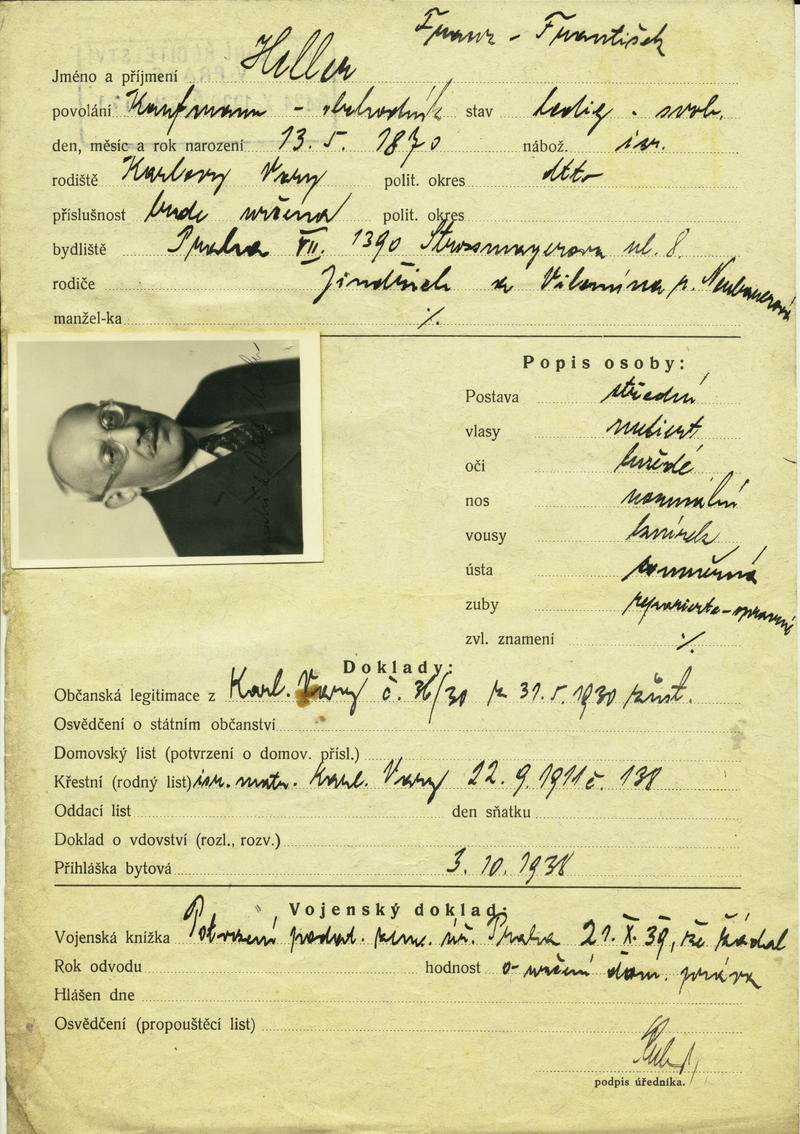 Franz - František
Jméno a příjmení Heller
povolání Kaufmann - obchodník stav ledig - svob.
den, měsíc a rok narození 13. 5. 1870 nábož. isr.
rodiště Karlovy Vary polit. okres dtto
příslušnost bude určena polit. okres
bydliště Praha VII. 1390 Strossmayerova ul. 8.
rodiče Jindřich a Vilemína r. Neubauerová
manžel-ka %.
Popis osoby:
Postava střední
vlasy meliert
oči hnědé
nos normální
vousy knírek
ústa souměrná
zuby reparierte-opravené
zvl. znamení %.
Doklady:
Občanská legitimace z Karl. Vary č. 36/30 z 31. 5. 1930
Osvědčení o státním občanství
Domovský list (potvrzení o domov. přísl.)
Křestní (rodný list) isr. matr. Karl. Vary 22. 9. 1911 č. 138
Oddací list den sňatku
Doklad o vdovství (rozl., rozv.)
Přihláška bytová 3. 10. 1938
Vojenský doklad:
Vojenská knížka Potvrzení zem. úř. Praha 21. X. 39, že žádal
Rok odvodu hodnost o určení dom. práva
Hlášen dne
Osvědčení (propouštěcí list)
podpis úředníka.